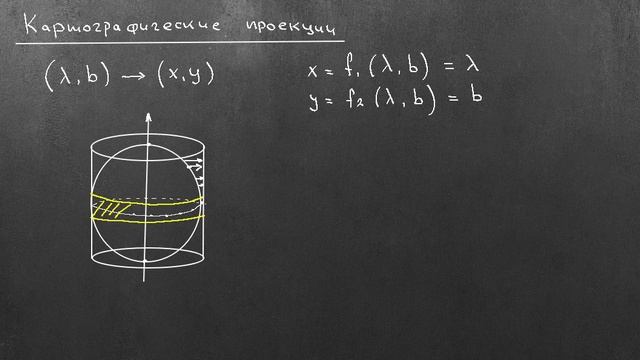 Картографические проекции
(λ, b) → (x, y)
x = f₁ (λ, b) = λ
y = f₂ (λ, b) = b